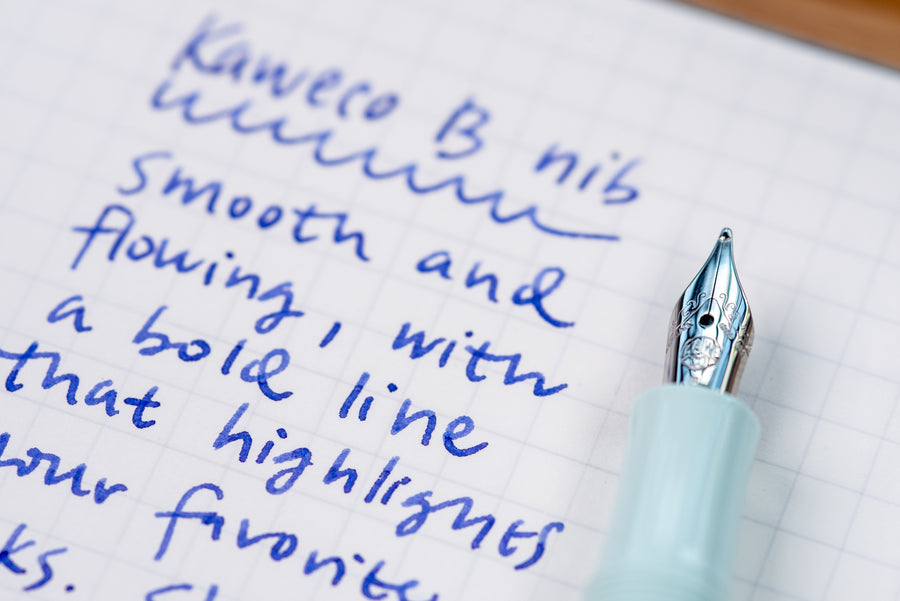 Kaweco B nib
smooth and
flowing, with
a bold line
that highlights
your favorite